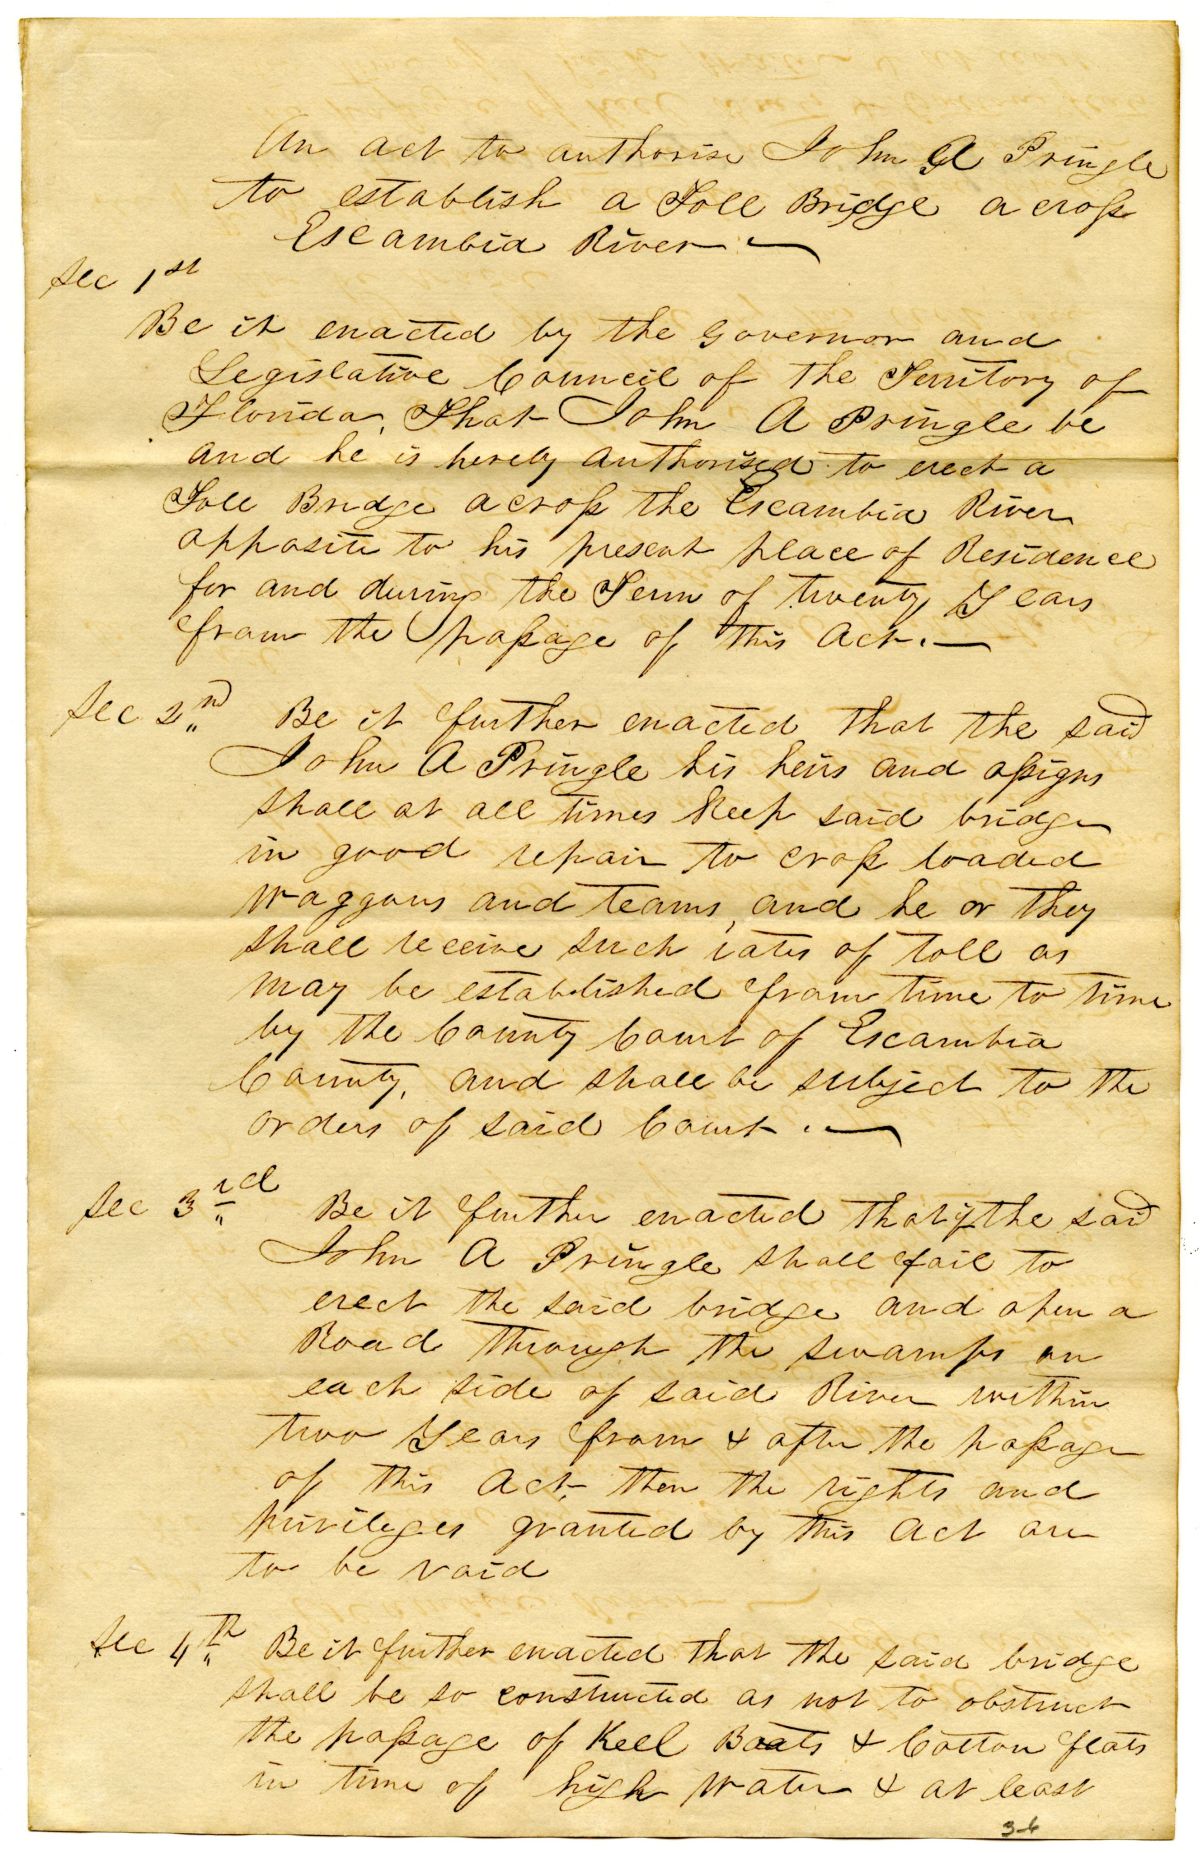 An act to authorise John A Pringle
to establish a Toll Bridge across
Escambia River
Sec 1st
Be it enacted by the Governor and
Legislative Council of the Territory of
Florida, That John A Pringle be
and he is hereby authorised to erect a
Toll Bridge across the Escambia River
opposite to his present place of Residence
for and during the Term of twenty Years
from the passage of this Act.
Sec 2nd Be it further enacted that the said
John A Pringle his heirs and assigns
shall at all times keep said bridge
in good repair to cross loaded
waggons and teams, and he or they
shall receive such rates of toll as
may be established from time to time
by the County Court of Escambia
County, and shall be subject to the
orders of said Court.
Sec 3rd Be it further enacted that if the said
John A Pringle shall fail to
erect the said bridge and open a
Road through the swamps on
each side of said River within
two Years from & after the passage
of this Act, then the rights and
privileges granted by this Act are
to be void
Sec 4th Be it further enacted that the said bridge
shall be so constructed as not to obstruct
the passage of Keel Boats & Cotton flats
in time of high water & at least
36